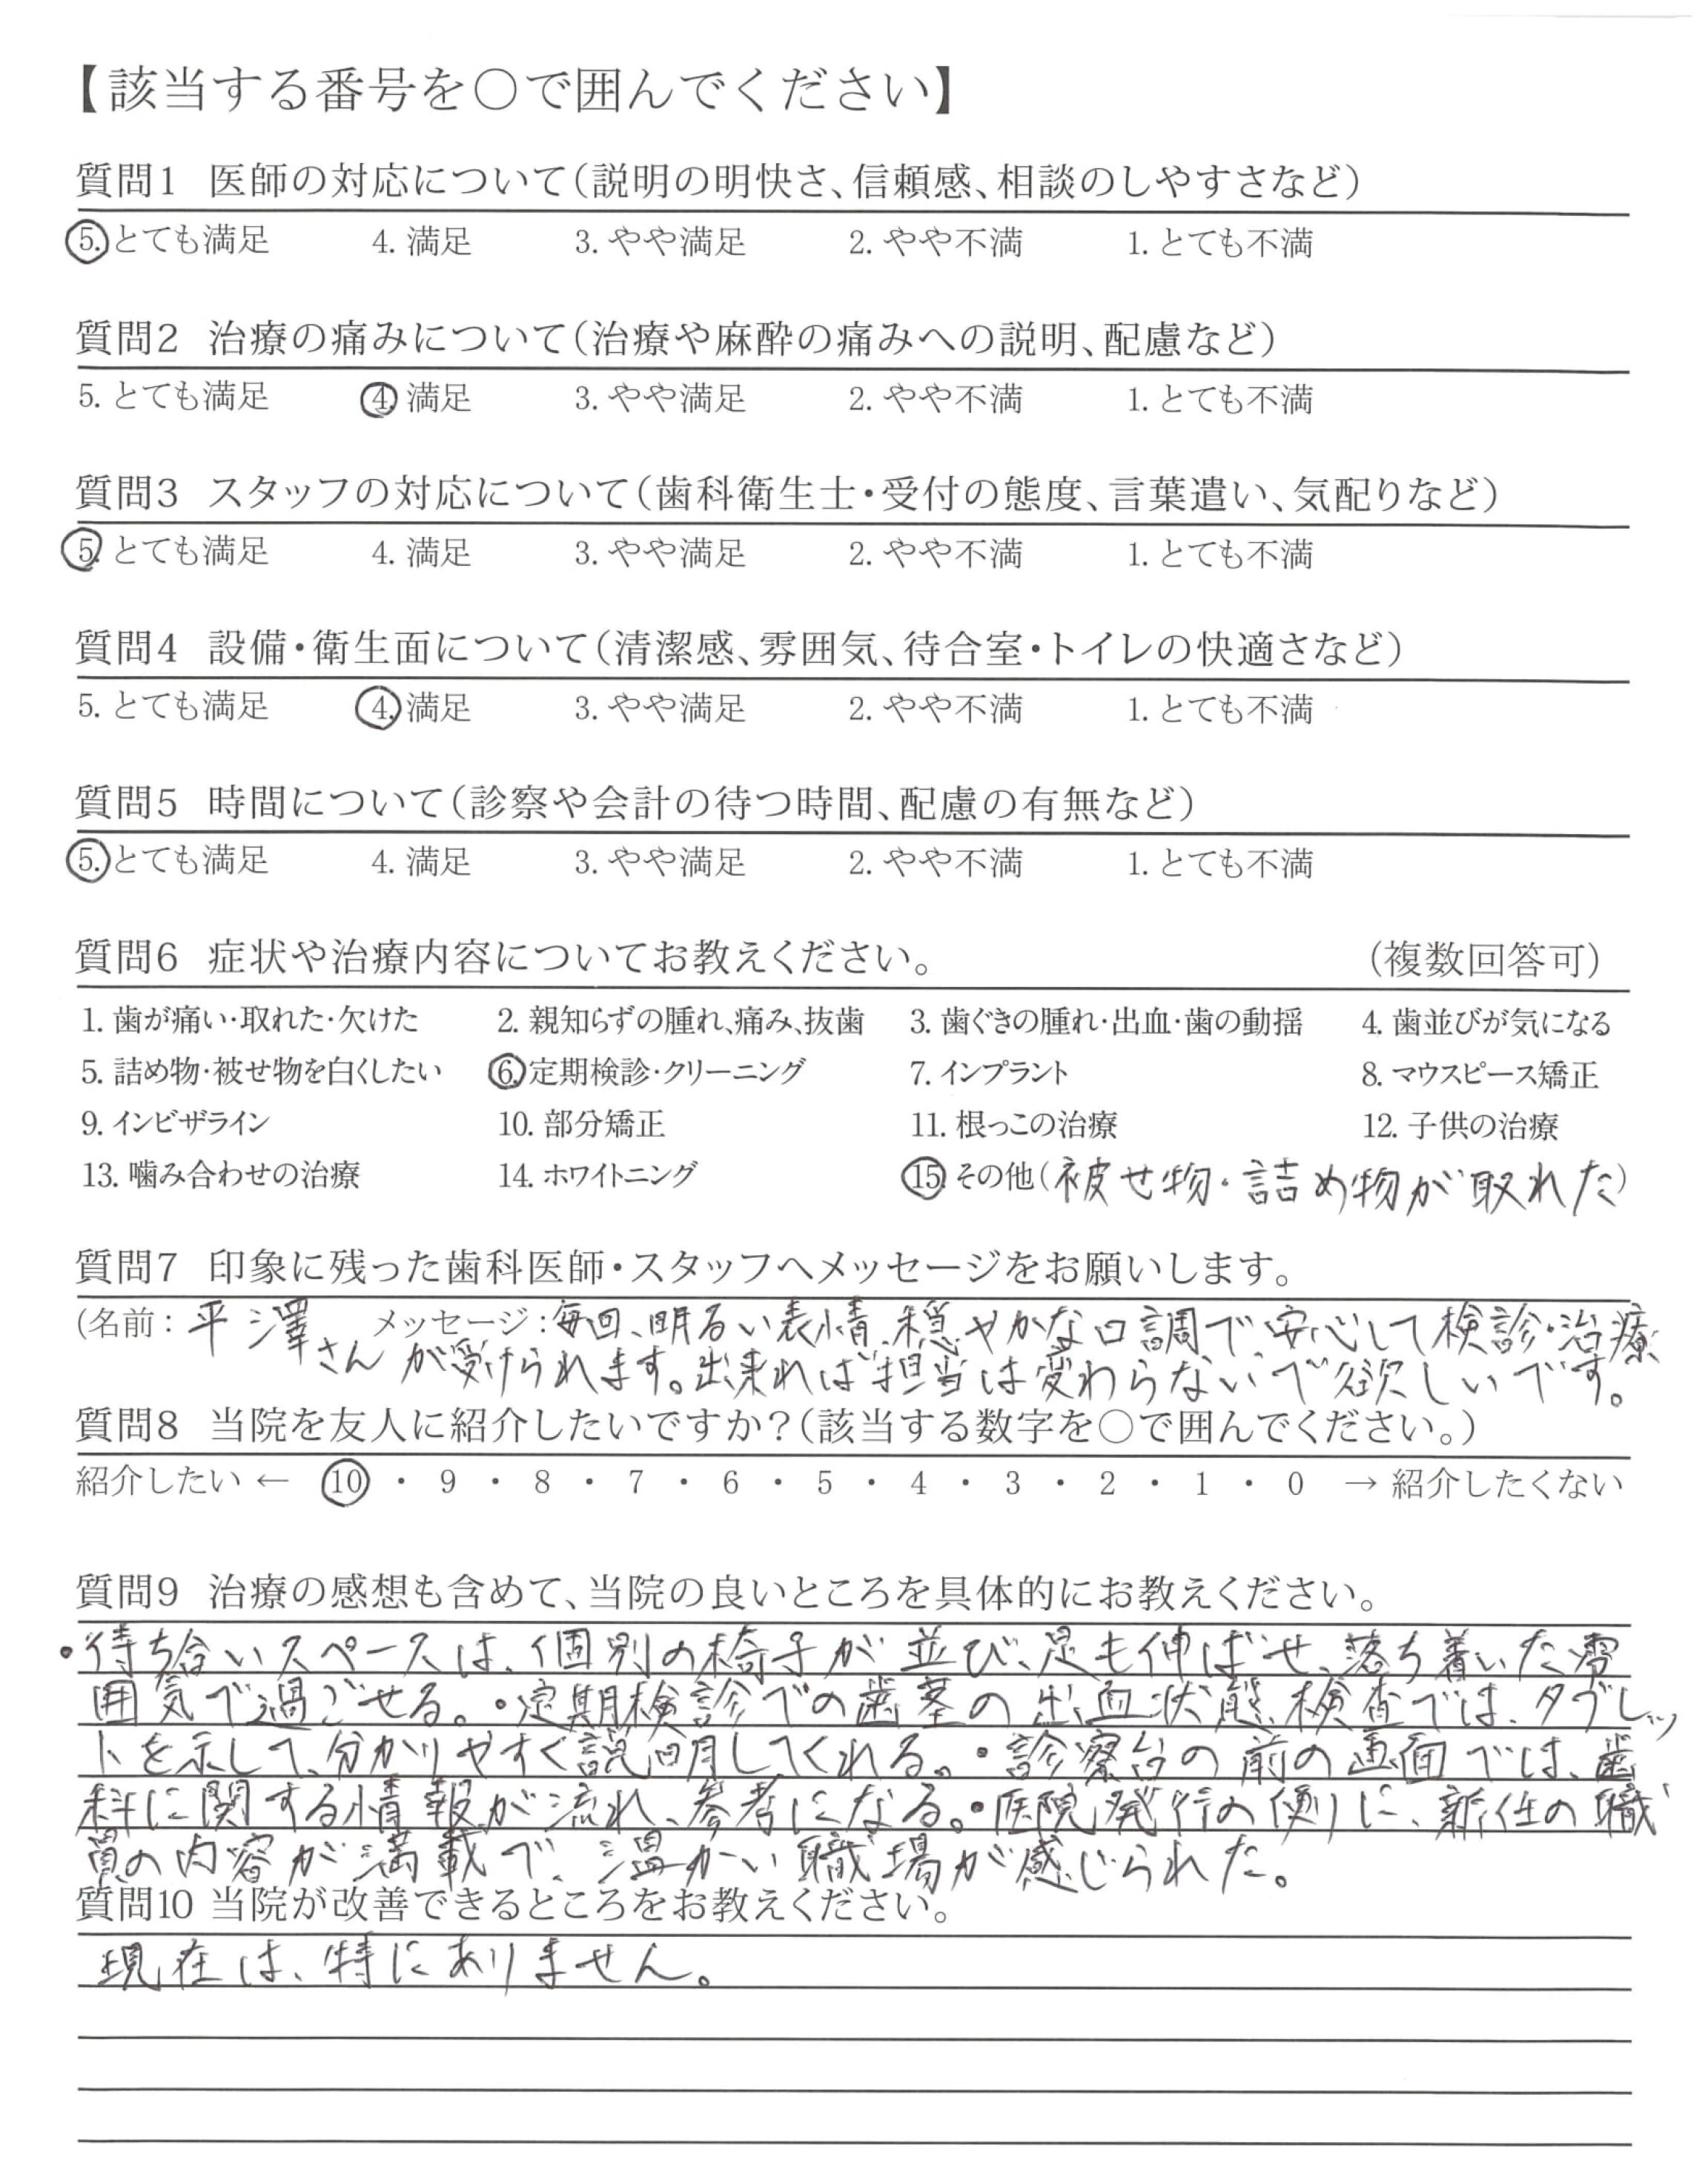 【該当する番号を○で囲んでください】
質問1 医師の対応について(説明の明快さ、信頼感、相談のしやすさなど)
5. とても満足 4. 満足 3. やや満足 2. やや不満 1. とても不満
質問2 治療の痛みについて(治療や麻酔の痛みへの説明、配慮など)
5. とても満足 4. 満足 3. やや満足 2. やや不満 1. とても不満
質問3 スタッフの対応について(歯科衛生士・受付の態度、言葉遣い、気配りなど)
5. とても満足 4. 満足 3. やや満足 2. やや不満 1. とても不満
質問4 設備・衛生面について(清潔感、雰囲気、待合室・トイレの快適さなど)
5. とても満足 4. 満足 3. やや満足 2. やや不満 1. とても不満
質問5 時間について(診察や会計の待つ時間、配慮の有無など)
5. とても満足 4. 満足 3. やや満足 2. やや不満 1. とても不満
質問6 症状や治療内容についてお教えください。 (複数回答可)
1. 歯が痛い・取れた・欠けた 2. 親知らずの腫れ、痛み、抜歯 3. 歯ぐきの腫れ・出血・歯の動揺 4. 歯並びが気になる
5. 詰め物・被せ物を白くしたい 6. 定期検診・クリーニング 7. インプラント 8. マウスピース矯正
9. インビザライン 10. 部分矯正 11. 根っこの治療 12. 子供の治療
13. 噛み合わせの治療 14. ホワイトニング 15. その他(被せ物・詰め物が取れた)
質問7 印象に残った歯科医師・スタッフへメッセージをお願いします。
(名前：平澤さん メッセージ：毎回、明るい表情、穏やかな口調で、安心して検診・治療
が受けられます。出来れば担当は変わらないで欲しいです。
質問8 当院を友人に紹介したいですか?(該当する数字を○で囲んでください。)
紹介したい ← 10 ・ 9 ・ 8 ・ 7 ・ 6 ・ 5 ・ 4 ・ 3 ・ 2 ・ 1 ・ 0 → 紹介したくない
質問9 治療の感想も含めて、当院の良いところを具体的にお教えください。
・待ち合いスペースは、個別の椅子が並び、足も伸ばせ、落ち着いた雰
囲気で過ごせる。・定期検診での歯茎の出血状態、検査では、タブレッ
トを示して、分かりやすく説明してくれる。・診察台の前の画面では、歯
科に関する情報が流れ、参考になる。・医院発行の便りに、新任の職
員の内容が満載で、温かい職場が感じられた。
質問10 当院が改善できるところをお教えください。
現在は、特にありません。